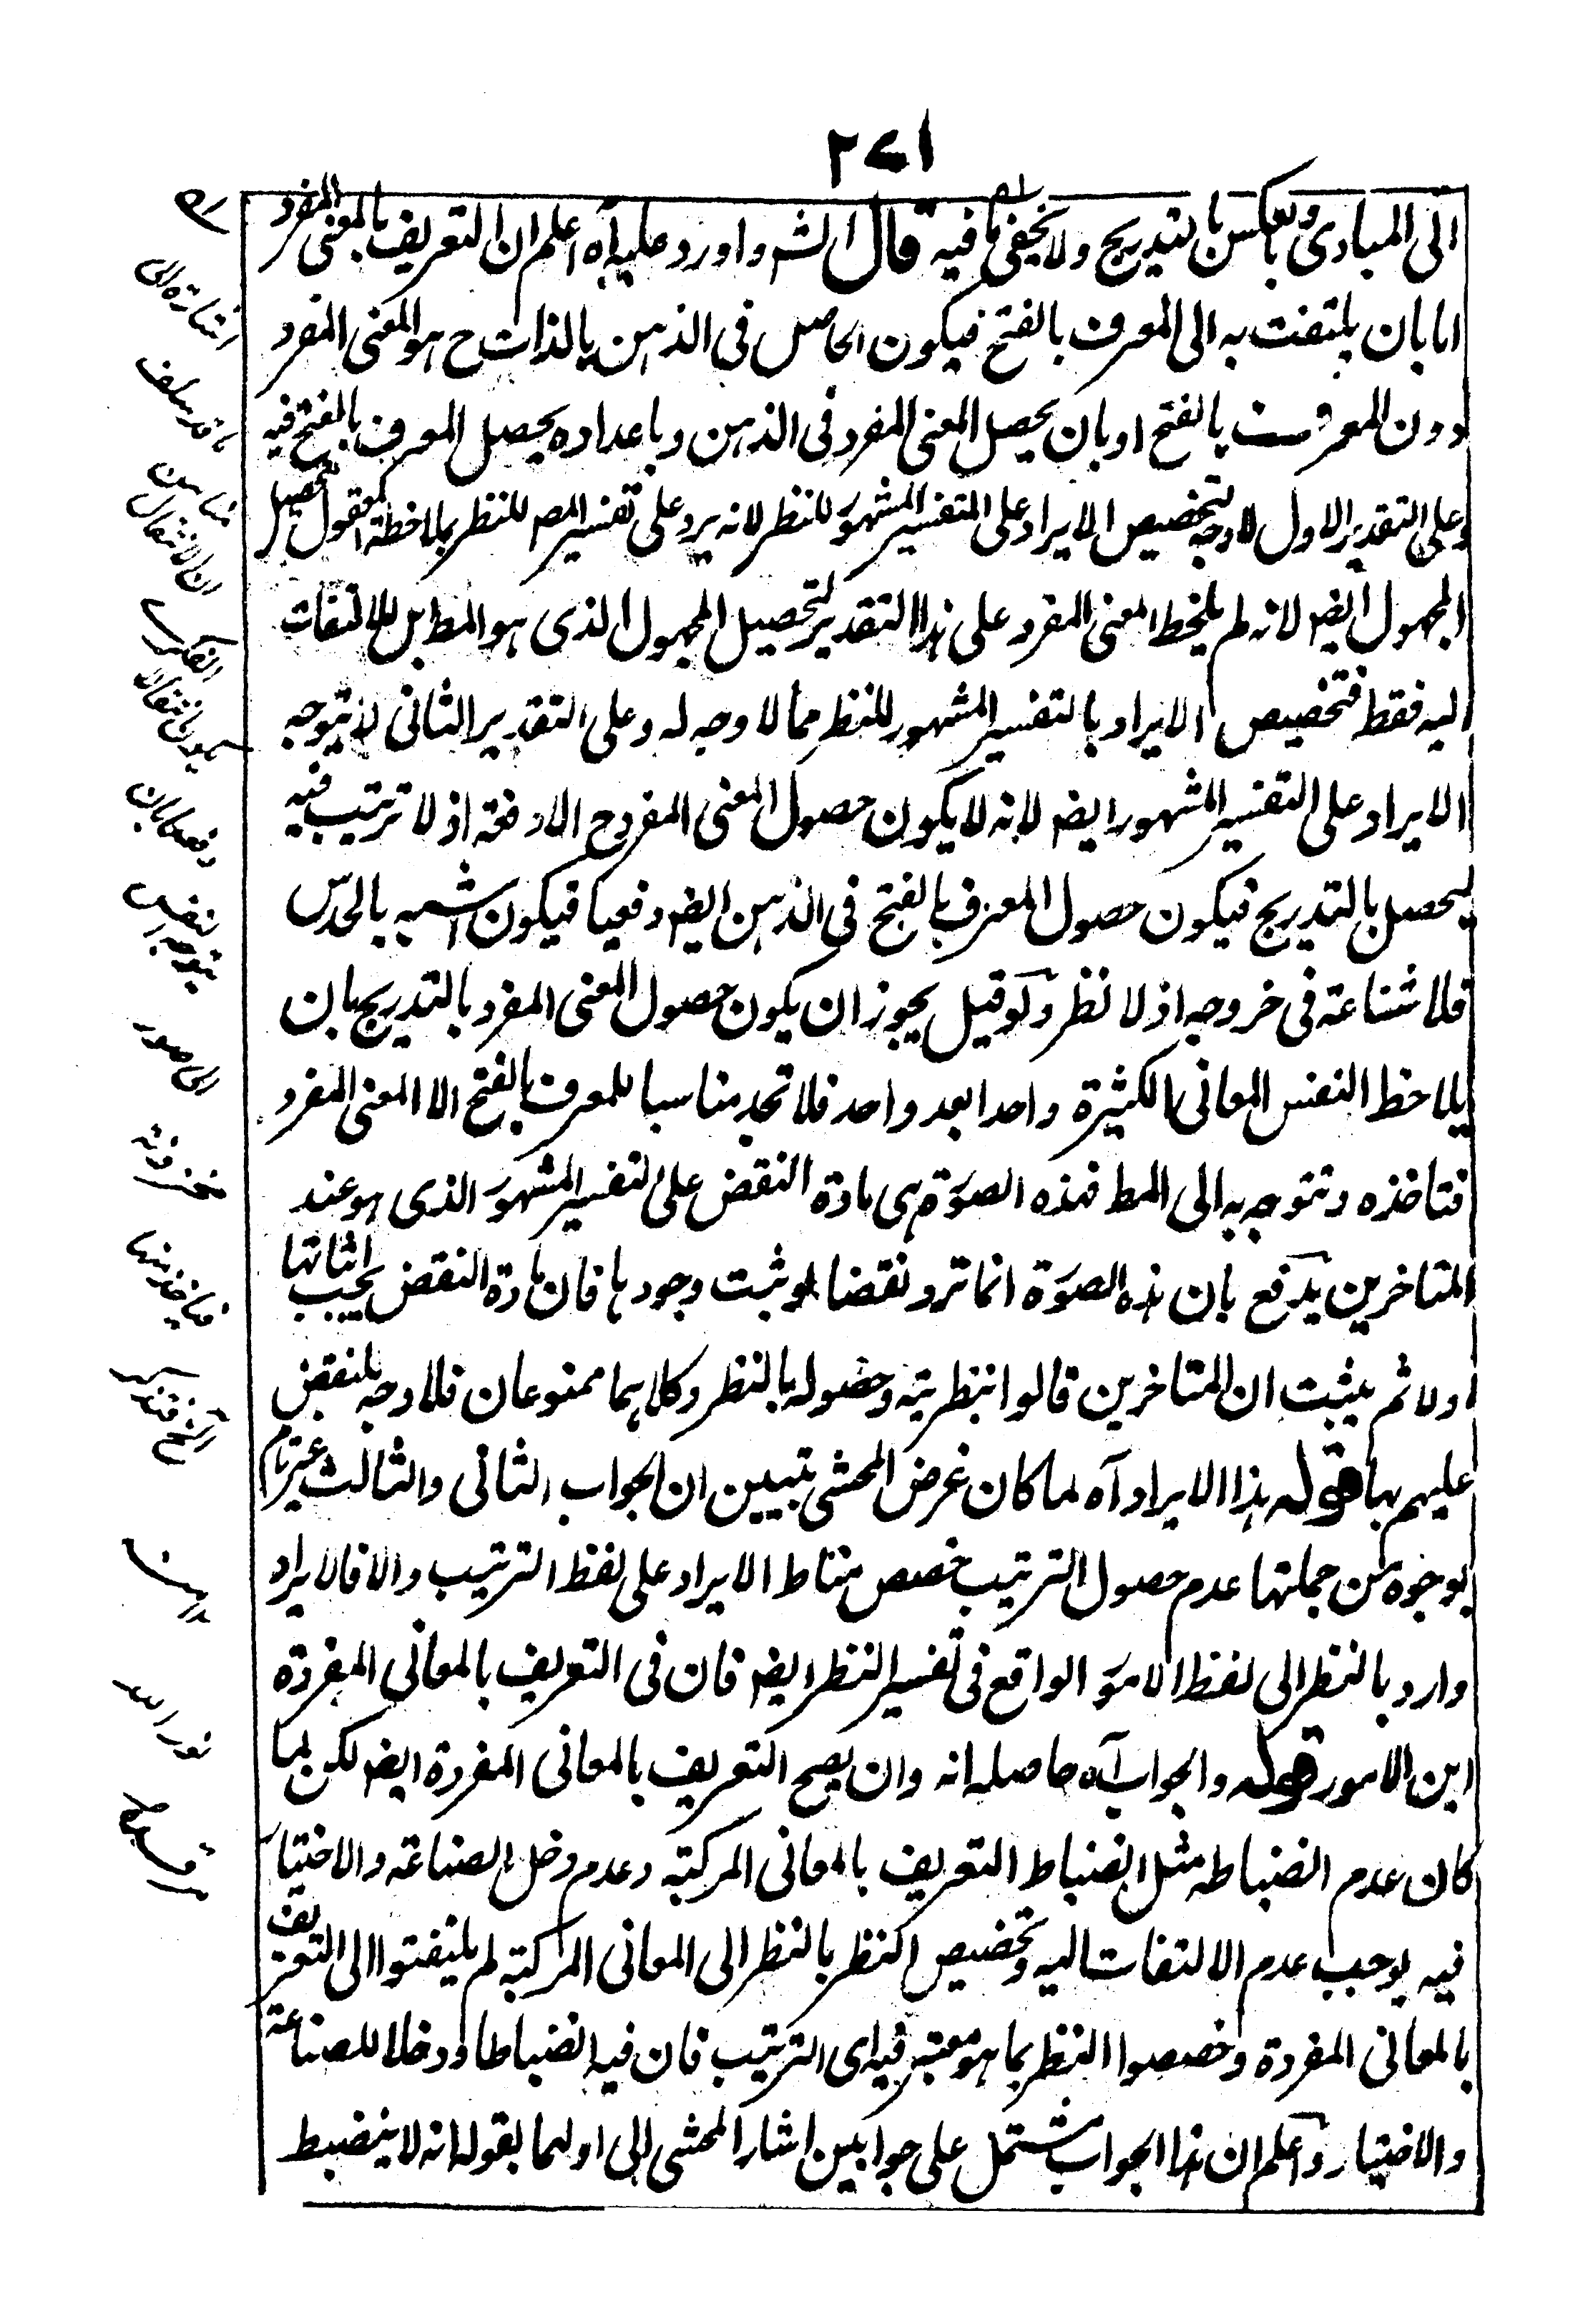 ٢٧١
الى المبادى وبالعكس بالتدريج ولا يخفى ما فيه قال الشم واورد عليه آه اعلم ان التعريف بالمعنى المفرد
اما بان يلتفت به الى المعرف بالفتح فيكون الحاصل فى الذهن بالذات ح هو المعنى المفرد
دون المعرف بالفتح او بان يحصل المعنى المفرد فى الذهن وباعداده يحصل المعرف بالفتح فيه
وعلى التقدير الاول لا وجه لتخصيص الايراد على التفسير المشهور للنظر لانه يرد على تفسير المص للنظر بملاحظة المعقول لتحصيل
المجهول ايضا لانه لم يلاحظ المعنى المفرد على هذا التقدير لتحصيل المجهول الذى هو المط بل للالتفات
اليه فقط فتخصيص الايراد بالتفسير المشهور للنظر مما لا وجه له وعلى التقدير الثانى لا يتوجه
الايراد على التفسير المشهور ايضا لانه لا يكون حصول المعنى المفرد ح الا دفعة اذ لا ترتيب فيه
ليحصل بالتدريج فيكون حصول المعرف بالفتح فى الذهن ايضا دفعيا فيكون اشبه بالحدس
فلا شناعة فى خروجه اذ لا نظر ولو قيل يجوز ان يكون حصول المعنى المفرد بالتدريج بان
يلاحظ النفس المعانى الكثيرة واحدا بعد واحد فلا تجد مناسبا للمعرف بالفتح الا المعنى المفرد
فتاخذه وتتوجه به الى المط فهذه الصورة هى مادة النقض على التفسير المشهور الذى هو عند
المتاخرين يدفع بان هذه الصورة انما ترد نقضا لو ثبت وجودها فان مادة النقض يجب اثباتها
اولا ثم يثبت ان المتاخرين قالوا بنظريته وحصوله بالنظر وكلاهما ممنوعان فلا وجه للنقض
عليهم بها قوله هذا الايراد آه لما كان غرض المحشى تبيين ان الجواب الثانى والثالث غير تام
بوجوه من جملتها عدم حصول الترتيب خصص مناط الايراد على لفظ الترتيب والا فالايراد
وارد بالنظر الى لفظ الامور الواقع فى تفسير النظر ايضا فان فى التعريف بالمعانى المفردة
اين الامور قوله والجواب آه حاصله انه وان يصح التعريف بالمعانى المفردة ايضا لكن لما
كان عدم انضباطه مثل انضباط التعريف بالمعانى المركبة وعدم دخل الصناعة والاختيار
فيه يوجب عدم الالتفات اليه وتخصيص النظر بالنظر الى المعانى المركبة لم يلتفتوا الى التعريف
بالمعانى المفردة وخصصوا النظر بما هو معتبر فيه اى الترتيب فان فيه انضباطا ودخلا للصناعة
والاختيار واعلم ان هذا الجواب مشتمل على جوابين اشار المحشى الى اولهما بقوله انه لا ينضبط
اشارة الى
ما قد سلف
منا من
ان الانتقال
الفكرى
يكون انتقالا
دفعيا بان
يتوجه النفس
الى صور
مخزونة
فياخذ منها
نور الله
مرقده